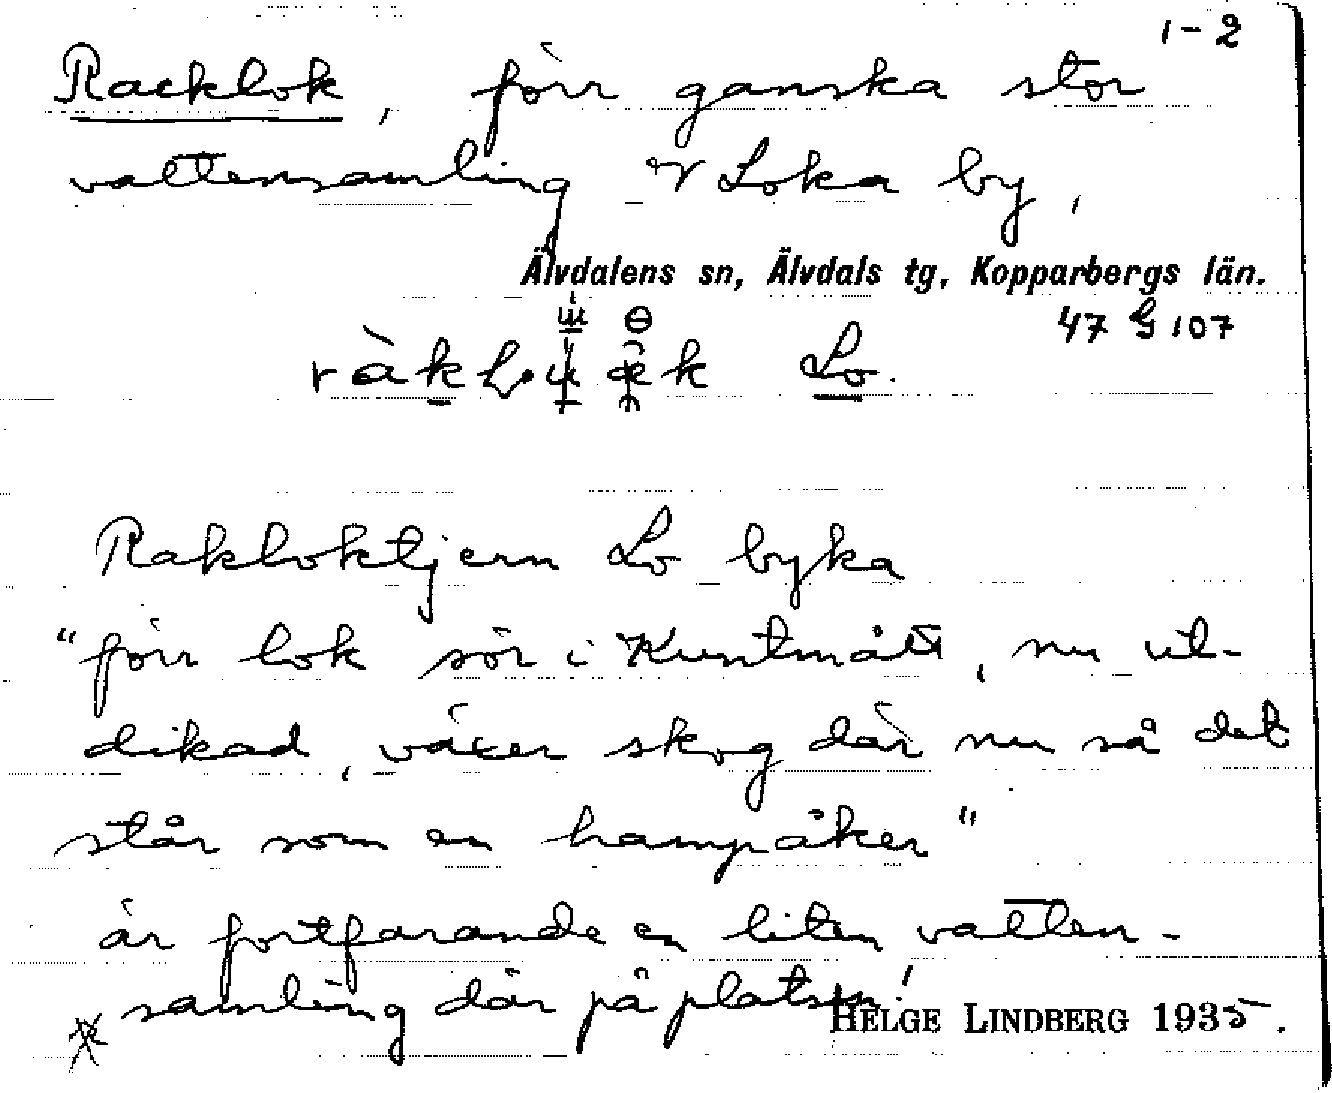 1-2
Racklok, förr ganska stor
vattensamling V Loka by,
Älvdalens sn, Älvdals tg, Kopparbergs län.
47 G 107
Lo.
Rakloktjern Lo byka
"förr lok sör i Kuntmått, nu ut-
dikad, växer skog där nu så det
står som en hampåker"
är fortfarande en liten vatten-
samling där på platsen!
HELGE LINDBERG 1935.